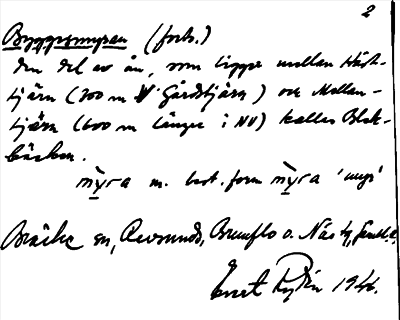 2
Byggesmyran (forts.)
Den del av ån, som ligger mellan Väst-
tjärn (300 m V Gårdstjärn) och Mellan-
tjärn (600 m längre i NV) kallas Blek-
bäcken.
myra m. best. form myra 'myr'
Bräcke sn, Revsunds, Brunflo o. Näs tg,
Evert Rydén 1946.